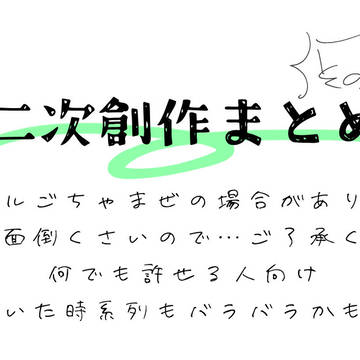 その
二次創作まとめ
ルごちゃまぜの場合があり
面倒くさいので…ご了承く
何でも許せる人向け
いた時系列もバラバラかも